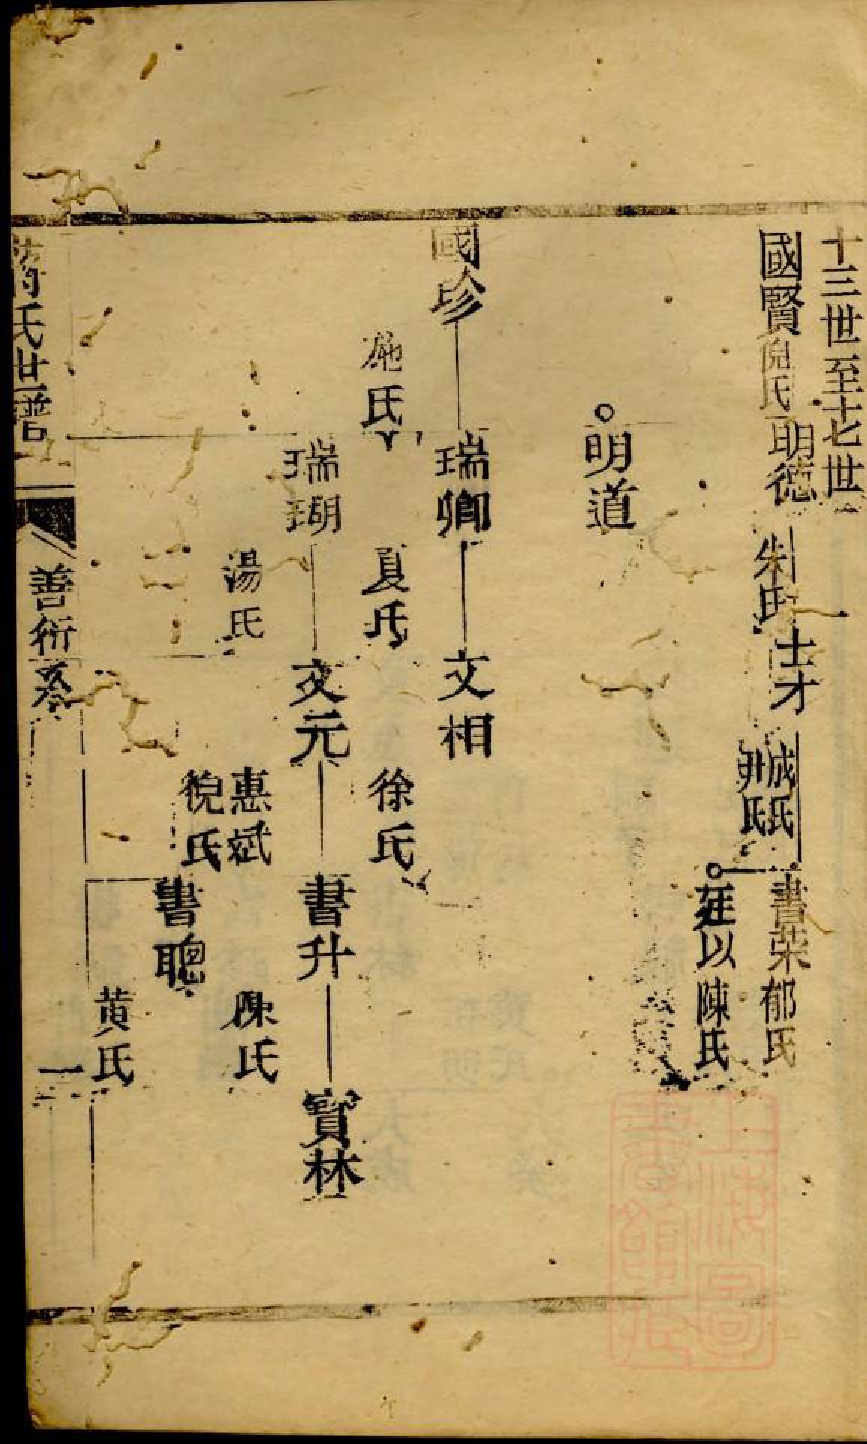 十三世至十七世
國賢 倪氏 明德 朱氏 士才 成氏 書荣 郁氏
氏 廷以 陳氏
明道
國珍 瑞卿 文相
施氏 夏氏 徐氏
瑞瑚 文元 書升 寳林
湯氏 惠斌 陳氏
倪氏
書聰
黄氏
氏世譜 善衍 一
上海圖書館藏